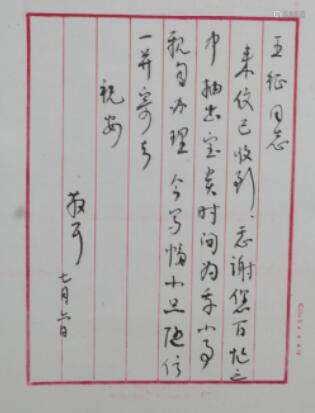 王征同志
来信已收到，忠谢您百忙之
中抽出宝贵时间为我小事
亲自办理，今写信小照随信
一并寄与
祝安
七月六日